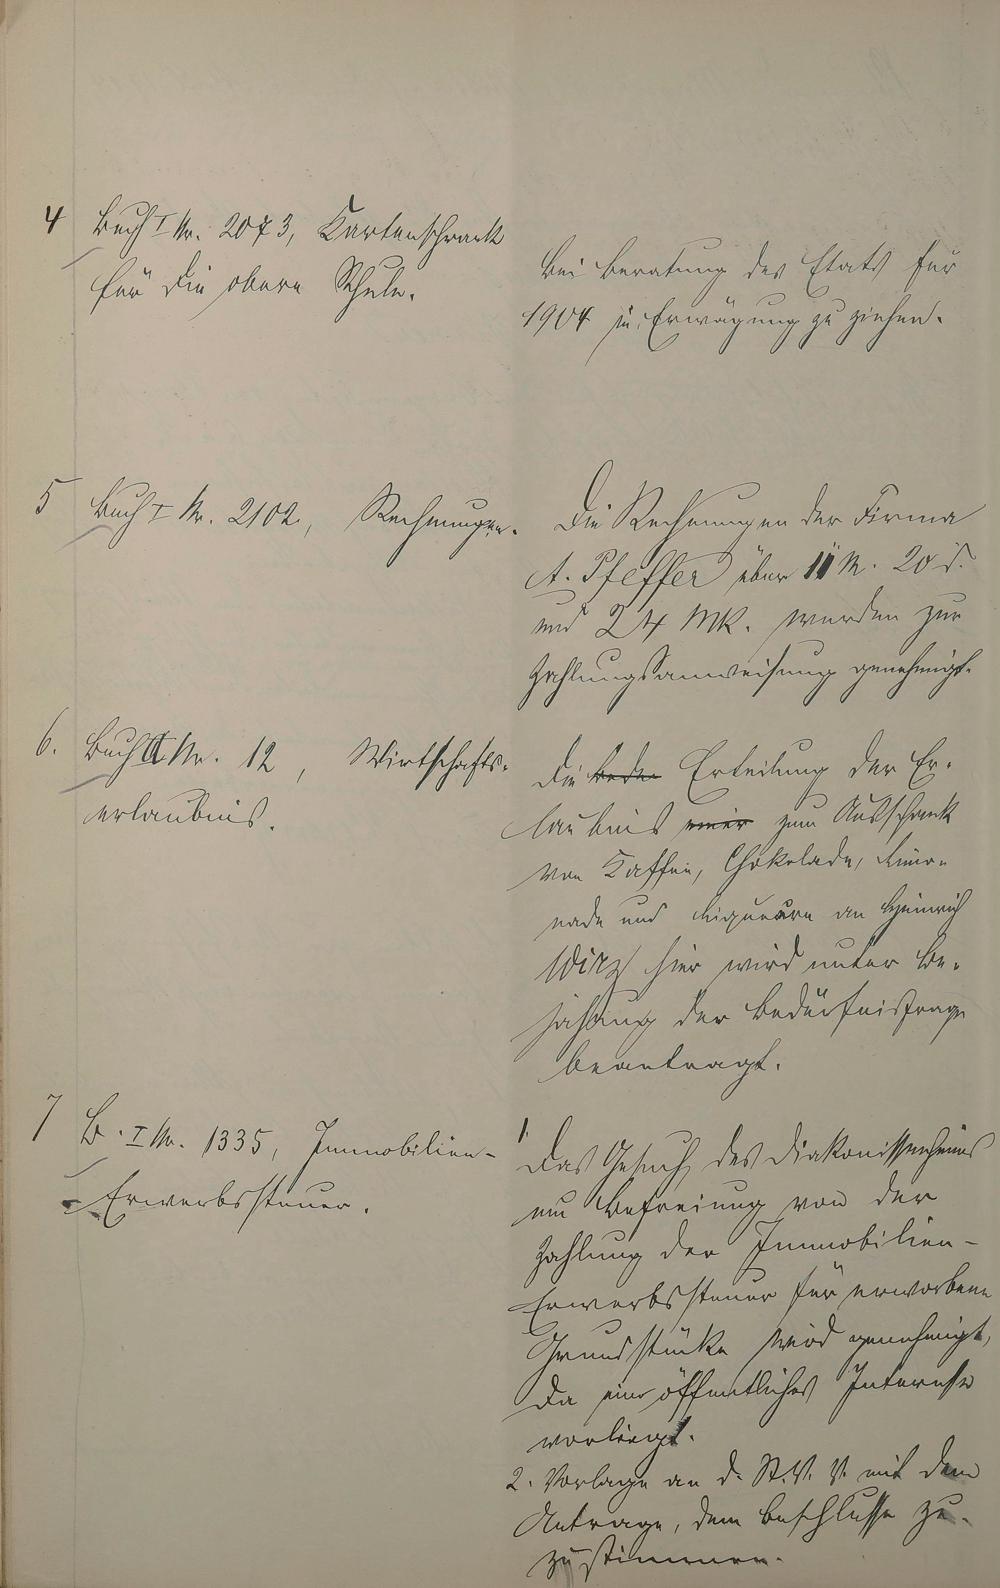 4 Buch I Nr. 2073, Kartenschrank
für die obere Schule.
Bei Beratung des Etats für
1904 in Erwägung zu ziehen.
5 Buch I Nr. 2102, Rechnungen.
Die Rechnungen der Firma
A. Pfeffer über 11 M. 20 d.
und 24 Mk. werden zur
Zahlungsanweisung genehmigt.
6. Buch II Nr. 12, Wirtschafts-
erlaubnis.
Die Erteilung der Er-
laubnis zum Ausschank
von Kaffee, Chokolade, Limo-
nade und Liqueure an Heinrich
Wirz hier wird unter Be-
jahung der Bedürfnisfrage
beantragt.
7 B. I Nr. 1335, Immobilien-
Erwerbssteuer.
1. Das Gesuch des Diakonissenheims
um Befreiung von der
Zahlung der Immobilien-
Erwerbssteuer für erworbene
Grundstücke wird genehmigt,
da ein öffentliches Interesse
vorliegt.
2. Vorlage an d. St. V. V. mit dem
Antrage, dem Beschlusse zu-
zustimmen.